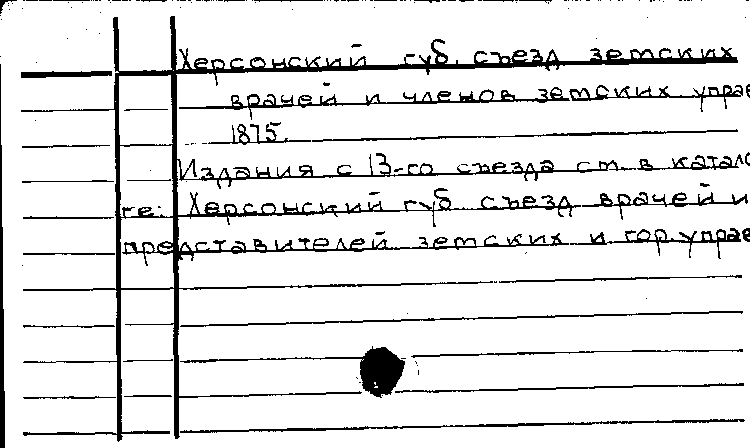 Херсонский губ. съезд земских
врачей и членов земских управ
1875.
Издания с 13-го съезда см. в катало
ге: Херсонский губ. съезд врачей и
представителей земских и гор. управ